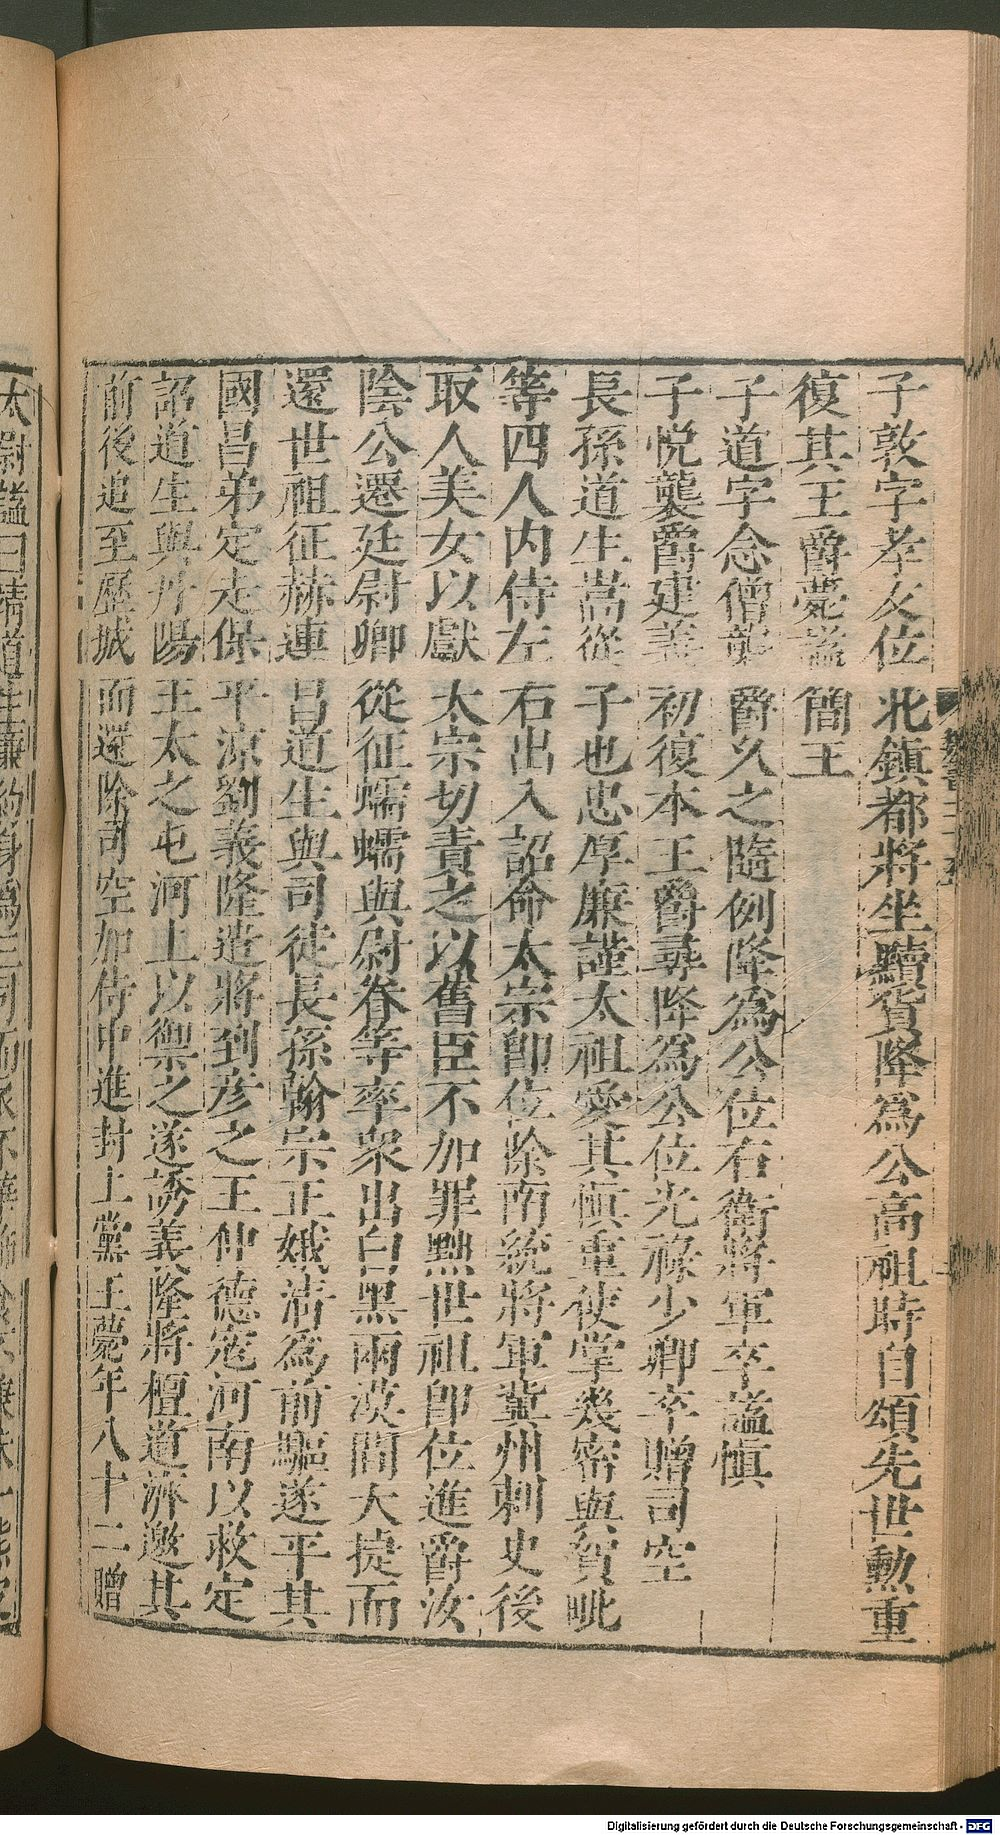 子敦字孝友位北鎮都將坐黷貨降為公高祖時自頌先世勲重
復其王爵薨謚簡王
子道字念僧襲爵久之隨例降為公位右衛將軍卒謚慎
子悅襲爵建義初復本王爵尋降為公位光祿少卿卒贈司空
長孫道生嵩從子也忠厚廉謹太祖愛其慎重使掌幾密與賀毗
等四人內侍左右出入詔命太宗即位除南統將軍冀州刺史後
取人美女以獻太宗切責之以舊臣不加罪黜世祖即位進爵汝
陰公遷廷尉卿從征蠕蠕與尉眷等率衆出白黑兩漠間大捷而
還世祖征赫連昌道生與司徒長孫翰宗正娥清為前驅遂平其
國昌弟定走保平涼劉義隆遣將到彥之王仲德寇河南以救定
詔道生與丹陽王太之屯河上以禦之遂誘義隆將檀道濟邀其
前後追至歷城而還除司空加侍中進封上黨王薨年八十二贈
太尉謚曰靖道生廉約身為三司而衣不華飾食不兼味一熊皮
Digitalisierung gefördert durch die Deutsche Forschungsgemeinschaft - DFG